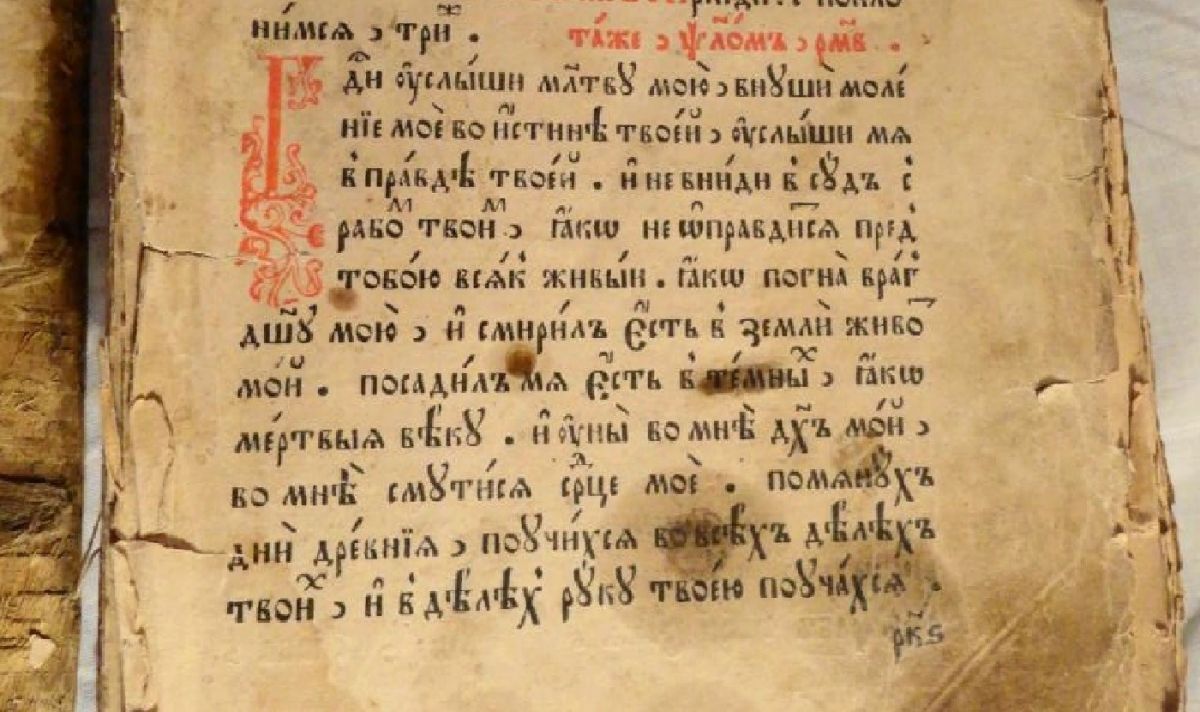 нимся, три̑ж.    та́же, ѱло́мъ, рм҃в.
Гд҇и ᲂу҆слы́ши мл҃тву мою̀, внꙋшѝ моле́
нїе моѐ во и҆́стинѣ твое́й, ᲂу҆слы́ши мѧ
в̾ пра́вдѣ твое́й. и҆ не вни́ди в̾ сꙋ́дъ с̾
рабоⷨ҇ твоиⷨ҇, ꙗ҆́кѡ не ѡ҆правди́тсѧ пред̾
тобо́ю всѧ́к̾ живы́и. ꙗ҆́кѡ погна̀ вра́г̾
дш҃ꙋ мою̀, и҆ смири́лъ є҆́сть в̾ землѝ живоⷮ
мо́й. посади́лъ мѧ є҆́сть в̾ те́мныⷯ, ꙗ҆́кѡ
ме́ртвыѧ вѣ́кꙋ. и҆ ᲂу҆ны̀ во мнѣ̀ дх҃ъ мо́й,
во мнѣ̀ смꙋти́сѧ срⷣце моѐ. помѧнꙋ́хъ
дни̑ дре́внїѧ, поꙋчи́хсѧ во всѣ́хъ дѣ́лѣхъ
твоиⷯ, и҆ в̾ дѣ́лѣх̾ рꙋ́кꙋ твое́ю поꙋча́хсѧ.
рк҃ѕ